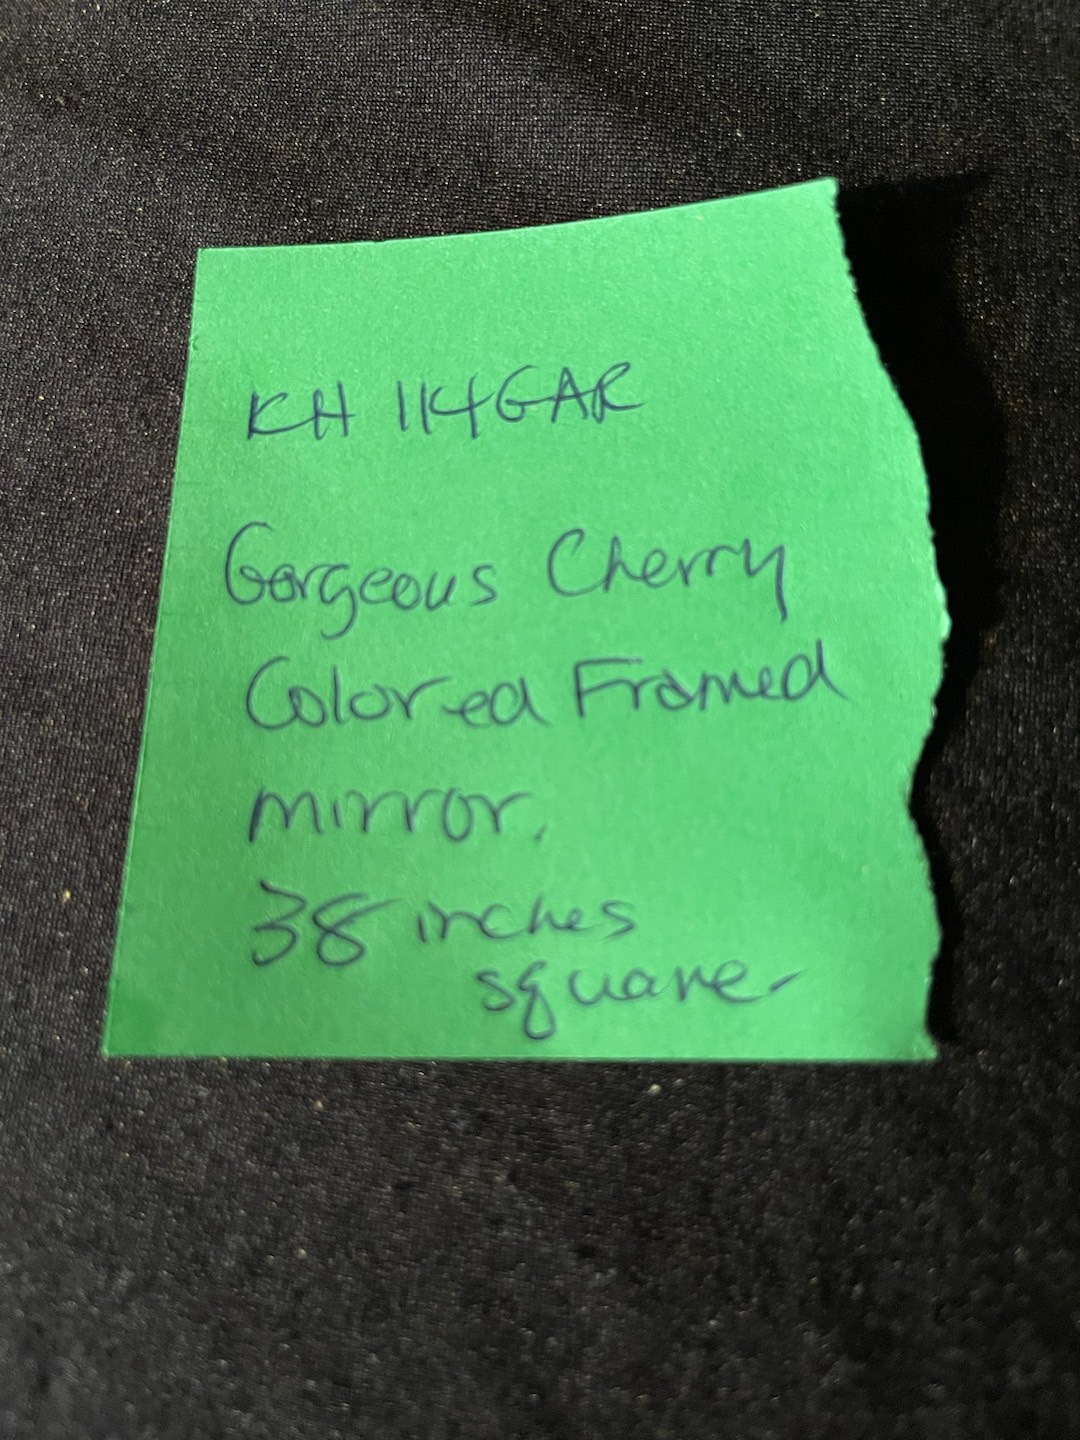 KH 114GAR
Gorgeous Cherry
Colored Framed
mirror.
38 inches
square